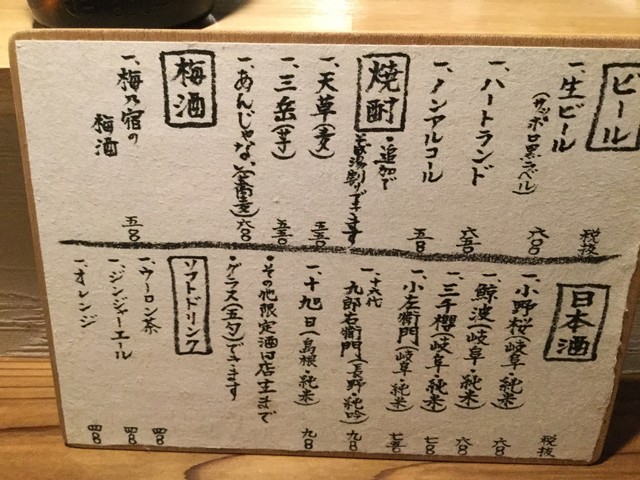 ビール
税抜
一、生ビール
(サッポロ黒ラベル)
六〇〇
一、ハートランド
六五〇
一、ノンアルコール
五〇〇
焼酎
・追加で
そば湯割りできます
一、天草(麦)
五五〇
一、三岳(芋)
五五〇
一、あんじゃな(蕎麦)
六〇〇
梅酒
一、梅乃宿の
梅酒
五〇〇
日本酒
税抜
一、小野桜(岐阜・純米)
六〇〇
一、鯨波(岐阜・純米)
六〇〇
一、三千櫻(岐阜・純米)
七〇〇
一、小左衛門(岐阜・純米)
七五〇
一、十六代
九郎右衛門(長野・純吟)
九〇〇
一、十旭日(島根・純米)
九〇〇
・その他限定酒は店主まで
・グラス(五勺)できます
ソフトドリンク
一、ウーロン茶
四〇〇
一、ジンジャーエール
四〇〇
一、オレンジ
四〇〇